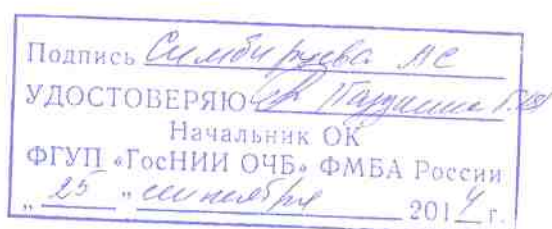 Подпись Симбирцева АС
УДОСТОВЕРЯЮ
Начальник ОК
ФГУП «ГосНИИ ОЧБ» ФМБА России
„ 25 " сентября 2014 г.